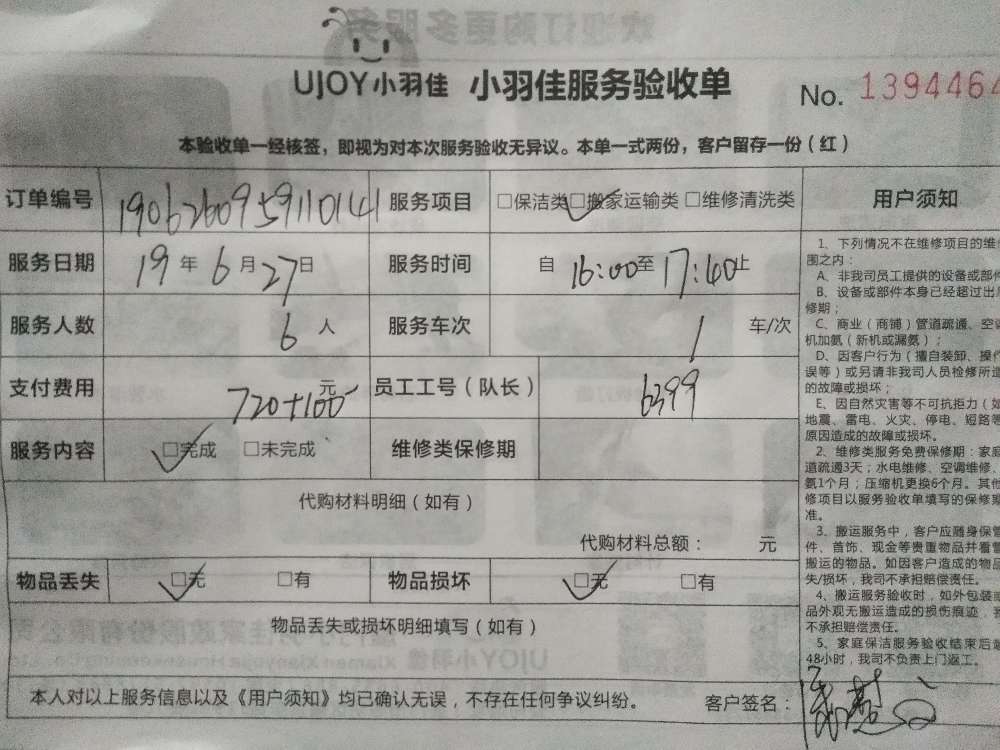 UJOY小羽佳 小羽佳服务验收单 No. 1394464
本验收单一经核签，即视为对本次服务验收无异议。本单一式两份，客户留存一份（红）
订单编号 190626095911014 服务项目 □保洁类 □搬家运输类 □维修清洗类
服务日期 19 年 6 月 27 日 服务时间 自 16:00 至 17:40 止
服务人数 6 人 服务车次 1 车/次
支付费用 720+100 元 员工工号（队长） 6399
服务内容 □完成 □未完成 维修类保修期
代购材料明细（如有）
代购材料总额： 元
物品丢失 □无 □有 物品损坏 □无 □有
物品丢失或损坏明细填写（如有）
本人对以上服务信息以及《用户须知》均已确认无误，不存在任何争议纠纷。 客户签名：
用户须知
1、下列情况不在维修项目的维
围之内：
A、非我司员工提供的设备或部件
B、设备或部件本身已经超过出
修期；
C、商业（商铺）管道疏通、空
机加氨（新机或漏氨）；
D、因客户行为（擅自装卸、操作
误等）或另请非我司人员检修所造
的故障或损坏；
E、因自然灾害等不可抗拒力（如
地震、雷电、火灾、停电、短路等
原因造成的故障或损坏。
2、维修类服务免费保修期：家庭
道疏通3天；水电维修、空调维修、
氨1个月；压缩机更换6个月。其他
修项目以服务验收单填写的保修期
准。
3、搬运服务中，客户应随身保管
件、首饰、现金等贵重物品并看管
搬运的物品。如因客户造成的物品
失/损坏，我司不承担赔偿责任。
4、搬运服务验收时，如外包装或
品外观无搬运造成的损伤痕迹，我
不承担赔偿责任。
5、家庭保洁服务验收结束后
48小时，我司不负责上门返工。